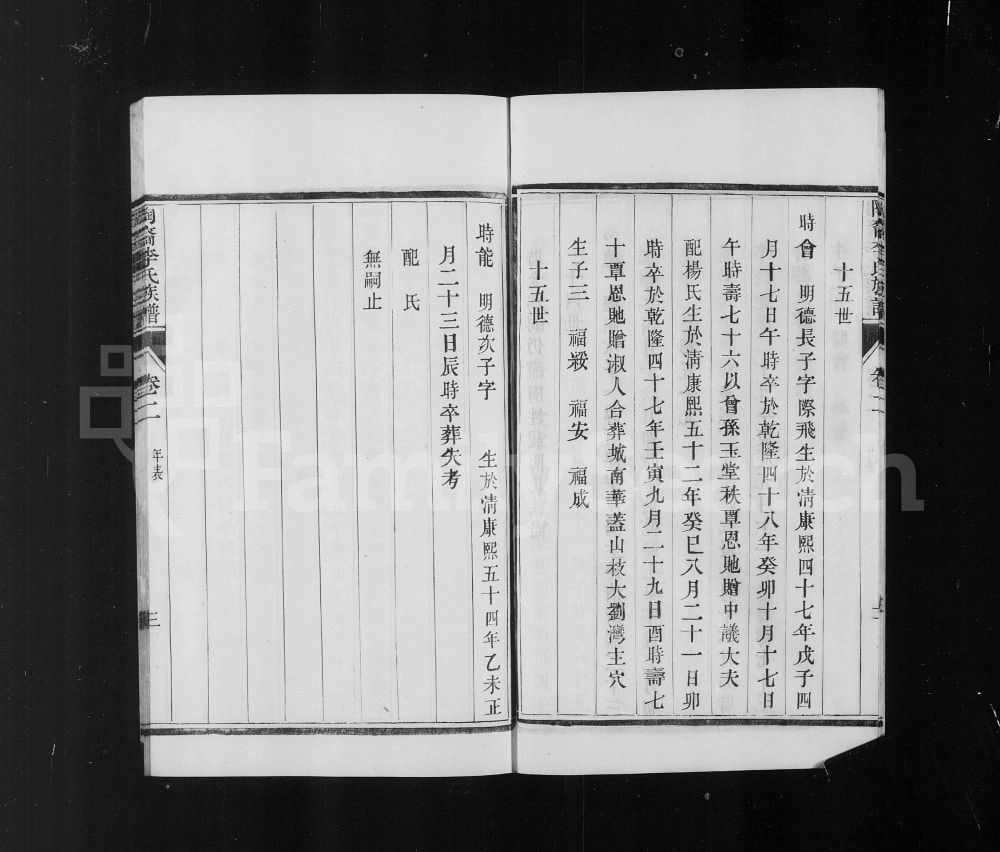 十五世
時會 明德長子字際飛生於清康熙四十七年戊子四
月十七日午時卒於乾隆四十八年癸卯十月十七日
午時壽七十六以曾孫玉堂秩覃恩貤贈中議大夫
配楊氏生於清康熙五十二年癸巳八月二十一日卯
時卒於乾隆四十七年壬寅九月二十九日酉時壽七
十覃恩貤贈淑人合葬城南華蓋山枝大劉灣主穴
生子三 福綏 福安 福成
十五世
時能 明德次子字 生於清康熙五十四年乙未正
月二十三日辰時卒葬失考
配 氏
無嗣止
李氏族譜 卷二 年表 三
FamilySearch